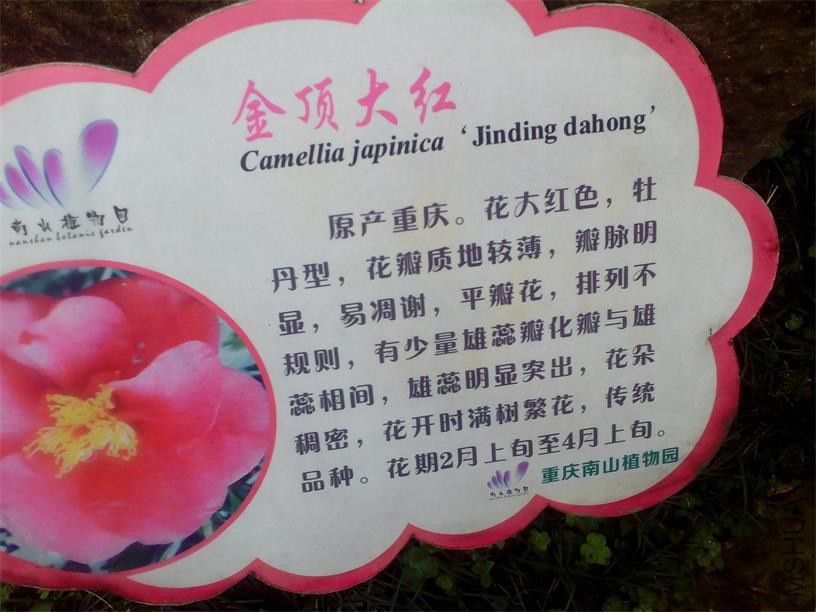 金顶大红
Camellia japinica ‘Jinding dahong’
南山植物园
nanshan botanic garden
原产重庆。花大红色，牡
丹型，花瓣质地较薄，瓣脉明
显，易凋谢，平瓣花，排列不
规则，有少量雄蕊瓣化瓣与雄
蕊相间，雄蕊明显突出，花朵
稠密，花开时满树繁花，传统
品种。花期2月上旬至4月上旬。
南山植物园
重庆南山植物园